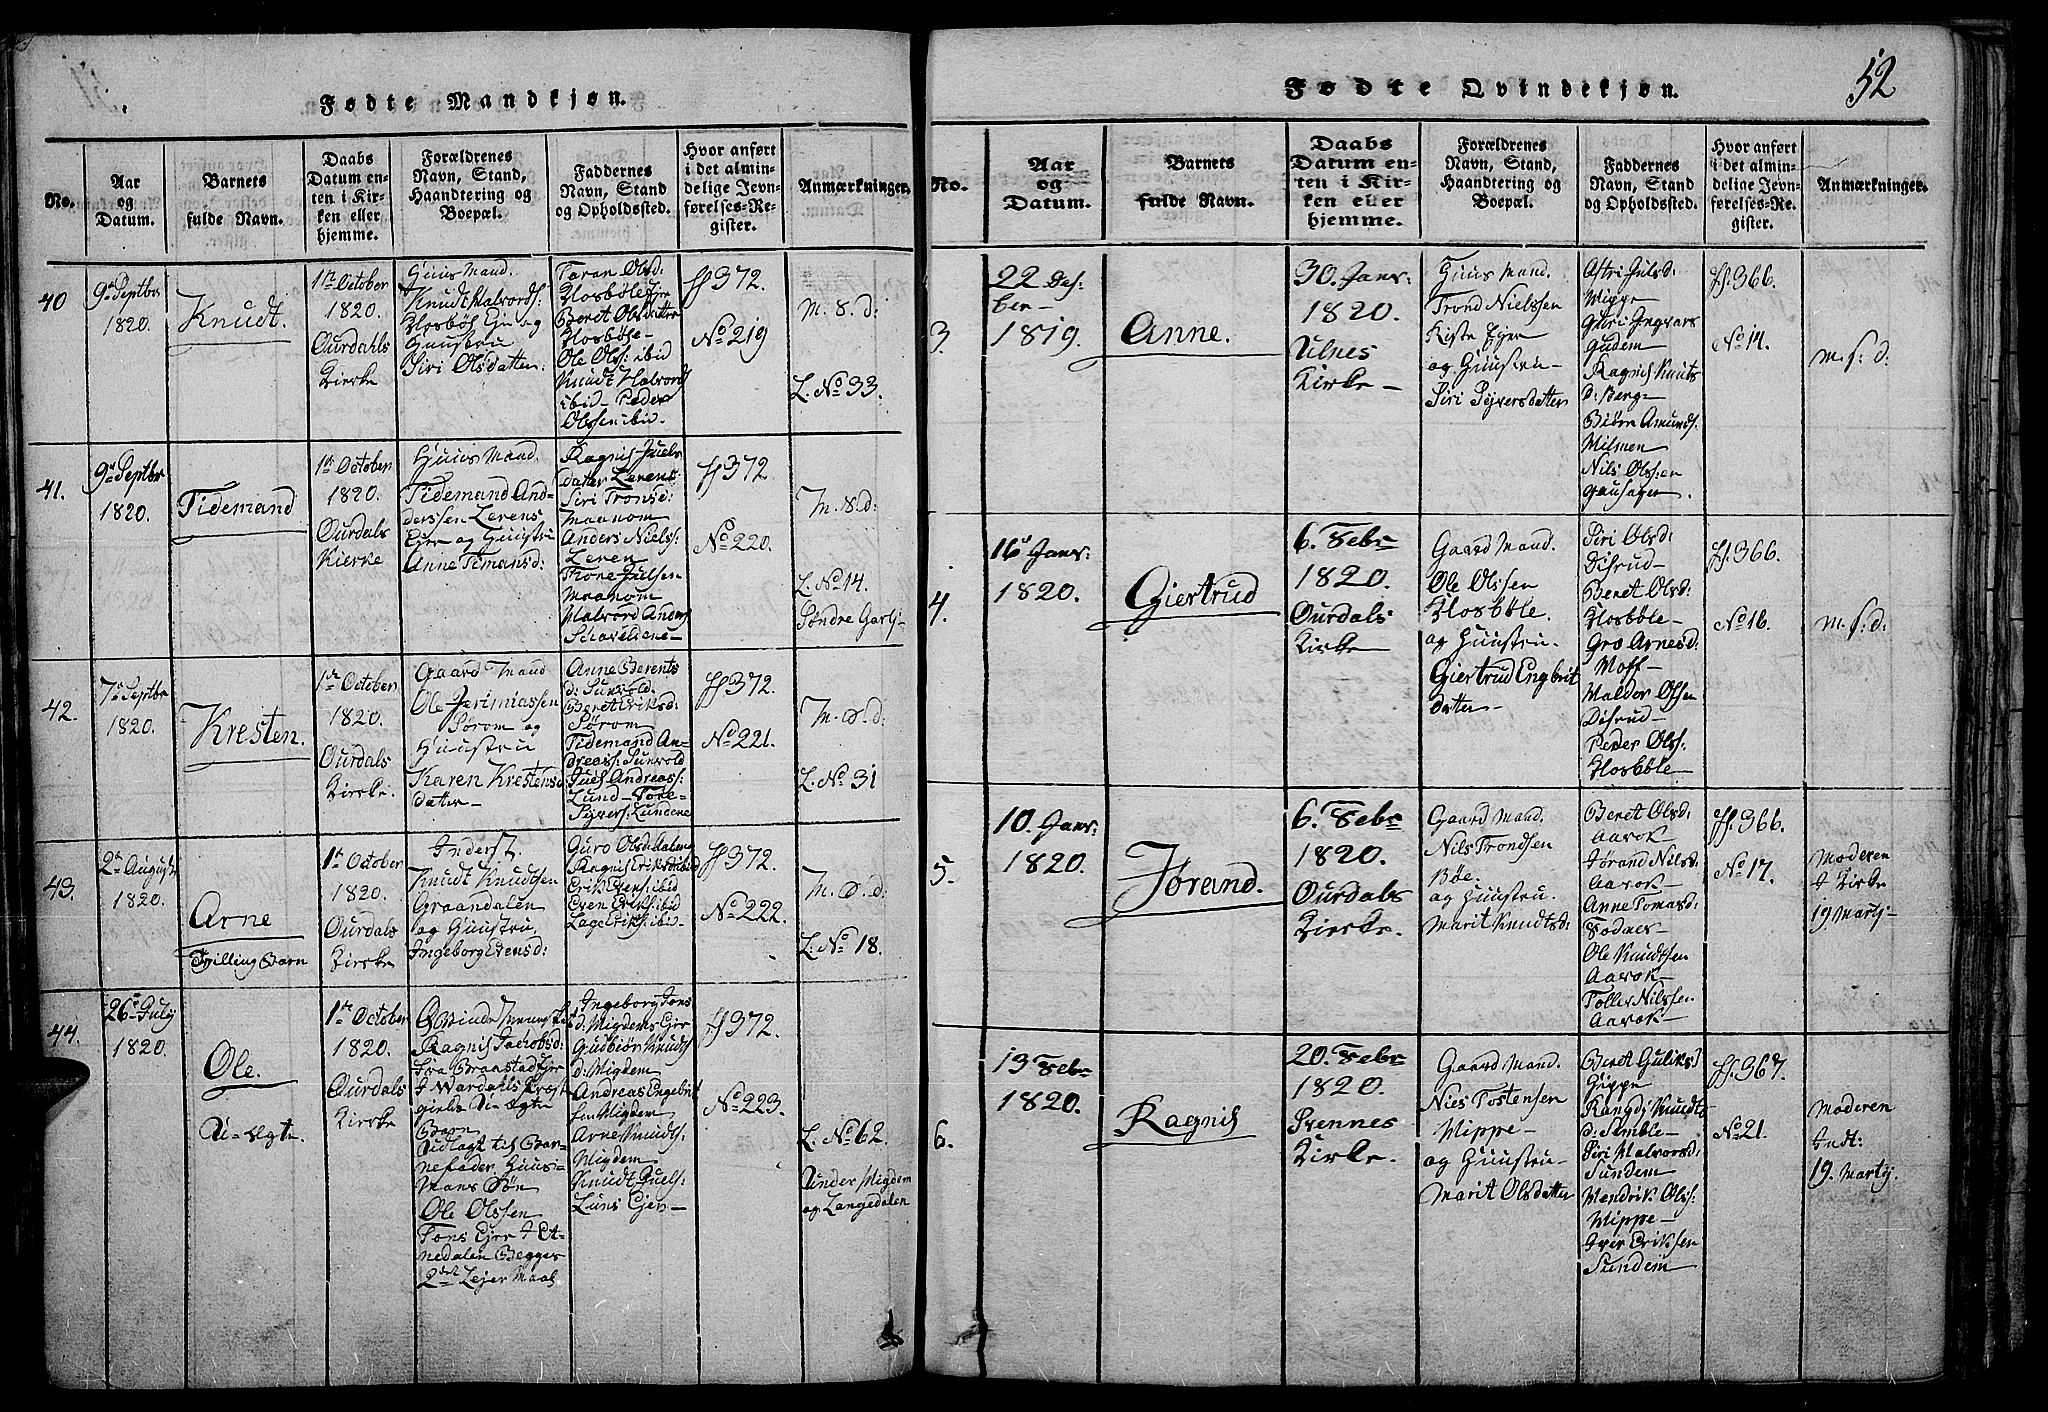 52
Fødte Mandkjøn.
No.
Aar
og
Datum.
Barnets
fulde Navn.
Daabs
Datum en-
ten i Kir-
ken eller
hjemme.
Forældrenes
Navn, Stand,
Haandtering og
Boepæl.
Faddernes
Navn, Stand
og Opholdssted.
Hvor anført
i det almin-
delige Jevn-
førelses-Re-
gister.
Anmærkninger.
40
9de Septbr
1820.
Knudt.
1ste October
1820.
Ourdahls
Kirke
Huus Mand.
Knudt Halvords:
Hosbøl Ejer og
Huustru
Siri Olsdatter:
Taran Olsd:
Hosbøle Ejer
Beret Olsdatter
Hosbøle-
Ole Ols: ibid
Knudt Halvords
ibid- Peder
Olssen ibid.
ff 372.
No 219
M. S. d:
L. No 33.
41.
9de Septbr
1820.
Tidemand
1ste October
1820.
Ourdals
Kierke
Huus Mand.
Tidemand And-
derssen Lerens
Ejer og Huustru
Anne Timansd:
Ragnis Juels
dater Lerens
Siri Tronsd:
Maanom
Anders Niels:
Leren
Tore Julsen
Maanom
Halvord Anders
Schaveldene-
ff 372.
No 220.
M. S. d:
L. No 14.
Søndre Garts-
42.
7de Septbr
1820.
Kresten.
1ste October
1820.
Ourdals
Kirke.
Gaard Mand
Ole Jerimiassen
Sørom og
Huustru
Karen Krestens
dater-
Anne Berents
d: Sunvold.
Beret Eriksd:
Sørom
Tidemand An-
dreas: Sunvold
Juel Andreas:
Lund- Tore-
Syvers: Lundene
ff 372.
No 221.
M. d. d:
L. No 31
43.
2de August
1820.
Arne
Tvilling Barn
1ste October
1820.
Ourdals
Kirke
Inderst.
Knudt Knudtsen
Graandalen
og Huustru,
Ingeborg Evensd:
Guro Olsd: dalen
Ragnis Eriksd: ibid
Erik Evens: ibid
Even Eriks: ibid
Lage Eriks: ibid-
ff 372.
No 222.
M. d. d:
L. No 18.
44.
26de July
1820.
Ole.
U- Ægte.
1ste October
1820.
Ourdals
Kirke
Qvinde Menniske
Ragnis Jacobsd:
fra Braastad Ejer
I Wardahls Præst
gields U- Ægte
Barn
Udlagt til Bar-
nefader Huus-
Mans Søn
Ole Olssen
Tons Ejer I Et-
nedalen Begges
2det Lejer Maal
Ingeborg Jons
d: Migdems Ejer
Gudbiør Knudts
d: Migdem
Andreas Engebrit
sen Migdem
Arne Knudts:
Migdem
Knudt Juels:
Luns Ejer-
ff 372.
No 223.
L. No 62.
Under Migdem
og Langedalen
Fødte Qvindekjøn.
No.
Aar
og
Datum.
Barnets
fulde Navn.
Daabs
Datum en-
ten i Kir-
ken eller
hjemme.
Forældrenes
Navn, Stand,
Haandtering og
Boepæl.
Faddernes
Navn, Stand
og Opholdssted.
Hvor anført
i det almin-
delige Jevn-
førelses-Re-
gister.
Anmærkninger.
3.
22 Des:
ber-
1819.
Anne.
30. Janr:
1820.
Ulnes
Kirke-
Huus Mand.
Trond Nielssen
Kiste Ejer
og Huustru-
Siri Syversdatter
Astri Julsd:
Wippe
Guri Ingvars
Gudem
Ragnis Knuts
d: Berg-
Biørn Amunds:
Milmen
Nils Olssen
Gausager.
ff. 366.
No 14.
M. S. d:
4.
16de Janr:
1820.
Giertrud
6. Febr
1820.
Ourdals
Kirke
Gaard Mand.
Ole Olssen
Hosbøle.
og Huustru.
Giertrud Engbrit
datter-
Siri Olsd:
Disrud-
Beret Olsd:
Hosbøle-
Gro Arnesd:
Moff-
Haldor Olsen
Disrud-
Peder Ols:
Hosbøle-
ff. 366.
No 16.
M. S. d:
5.
10. Janr:
1820.
Jørand.
6. Febr
1820.
Ourdals
Kirke.
Gaard Mand.
Nils Trondsen
Bøe.
og Huustru.
Marit Knudtsd:
Beret Olsd:
Aarok-
Jørand Nilsd:
Aarok-
Anne Tomasd:
Fodnes-
Ole Knudtsen
Aarok-
Toller Nilssen
Aarok-
ff. 366.
No 17.
Moderen
I Kirke
19. Marts-
6.
13 Febr
1820.
Ragnis
20. Febr
1820.
Svennes
Kirke.
Gaard Mand.
Nies Tostensen
Wippe-
og Huustru-
Marit Olsdatter
Beret Guliks:
Hippe
Rangdi Knudts
d: Semble-
Siri Halvorsd:
Sundem
Hendrik Ols:
Wippe-
Iver Eriksen
Sundem
ff. 367.
No 21.
Moderen
Indt:
19. Martij.